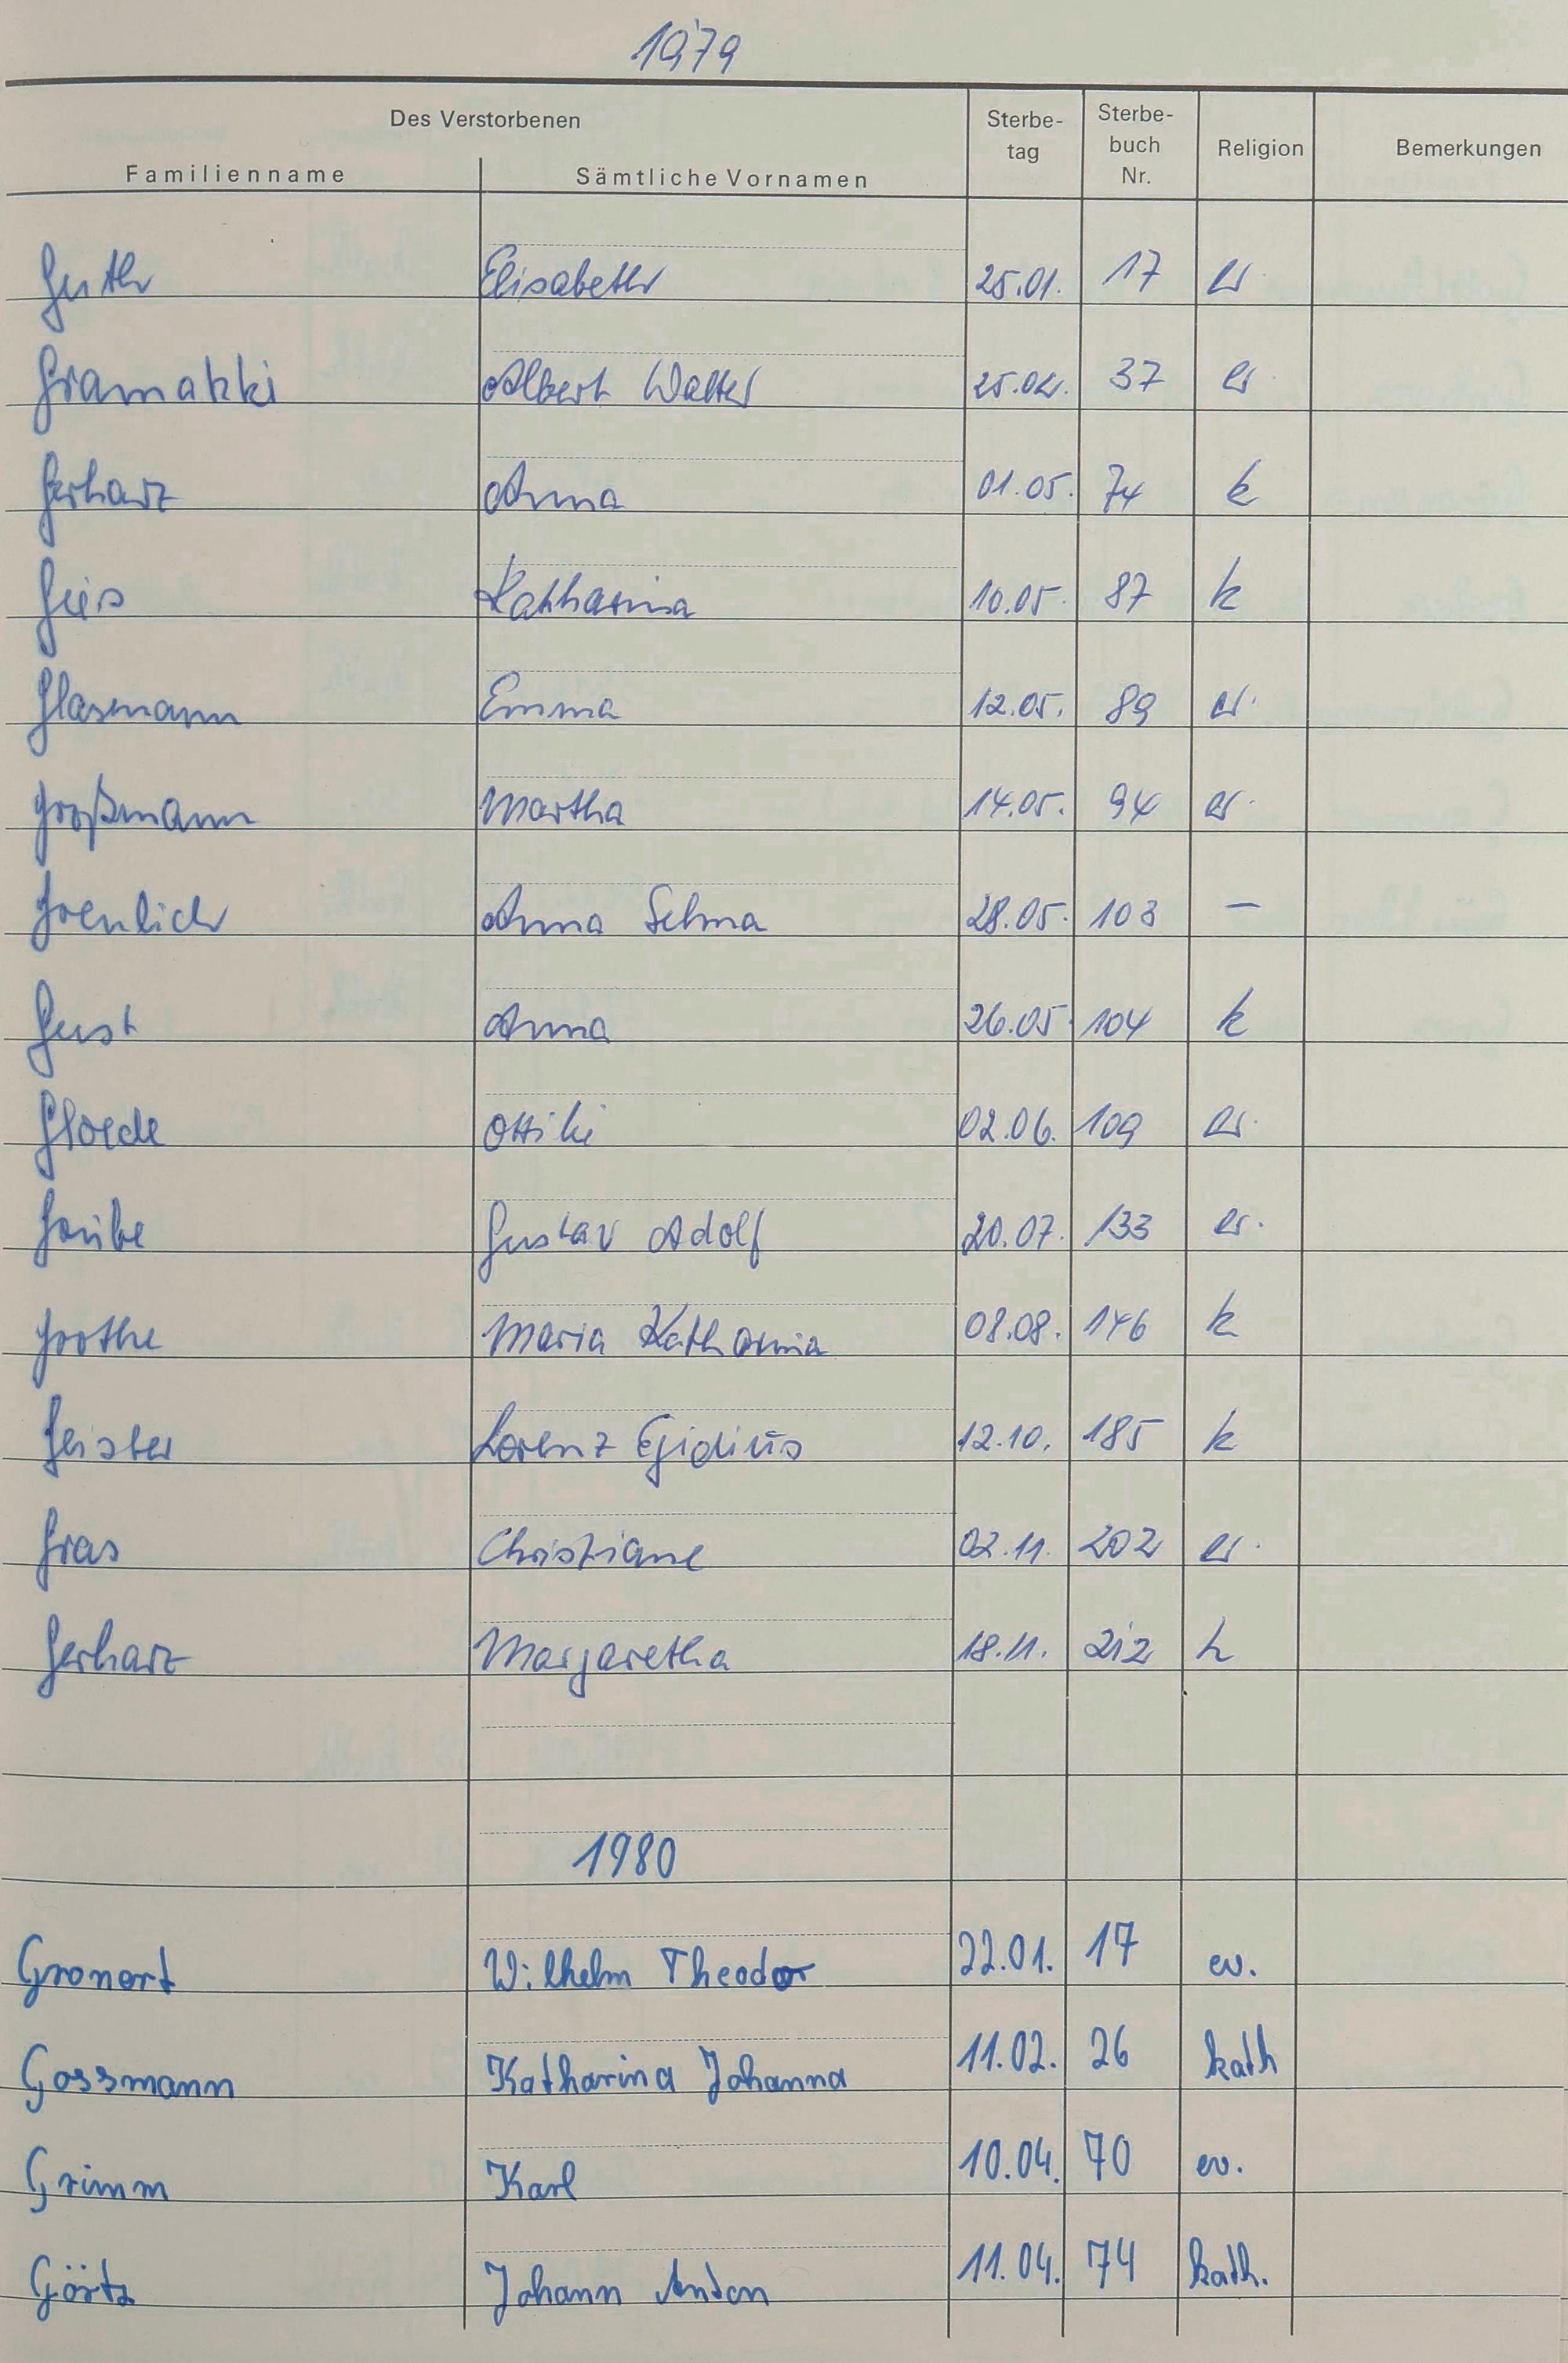 1979
Des Verstorbenen
Familienname Sämtliche Vornamen Sterbe-tag Sterbe-buch Nr. Religion Bemerkungen
Guth Elisabeth 25.01. 17 ev.
Gramatzki Albert Walter 25.02. 37 ev.
Gerharz Anna 01.05. 74 k
Gies Katharina 10.05. 87 k
Glasmann Emma 12.05. 89 ev.
Großmann Martha 14.05. 94 ev.
Anna Selma 28.05. 103 —
Anna 26.05 104 k
Gloede Ottilie 02.06. 109 ev.
Gustav Adolf 20.07. 133 ev.
Grothe Maria Katharina 08.08. 146 k
Geister Lorenz Egidius 12.10. 185 k
Gras Christiane 02.11. 202 ev.
Gerharz Margaretha 18.11. 212 k
1980
Gronert Wilhelm Theodor 22.01. 17 ev.
Gossmann Katharina Johanna 11.02. 26 kath
Grimm Karl 10.04. 70 ev.
Görtz Johann Anton 11.04. 74 kath.